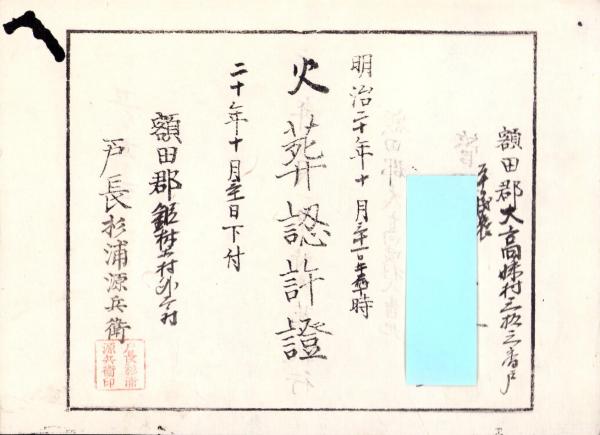 額田郡大高味村三拾三番戸
平民
明治二十年十月三十一日午前十時
火葬認許證
二十年十月三十一日下付
額田郡
戸長杉浦源兵衛
戸長杉浦
源兵衛印